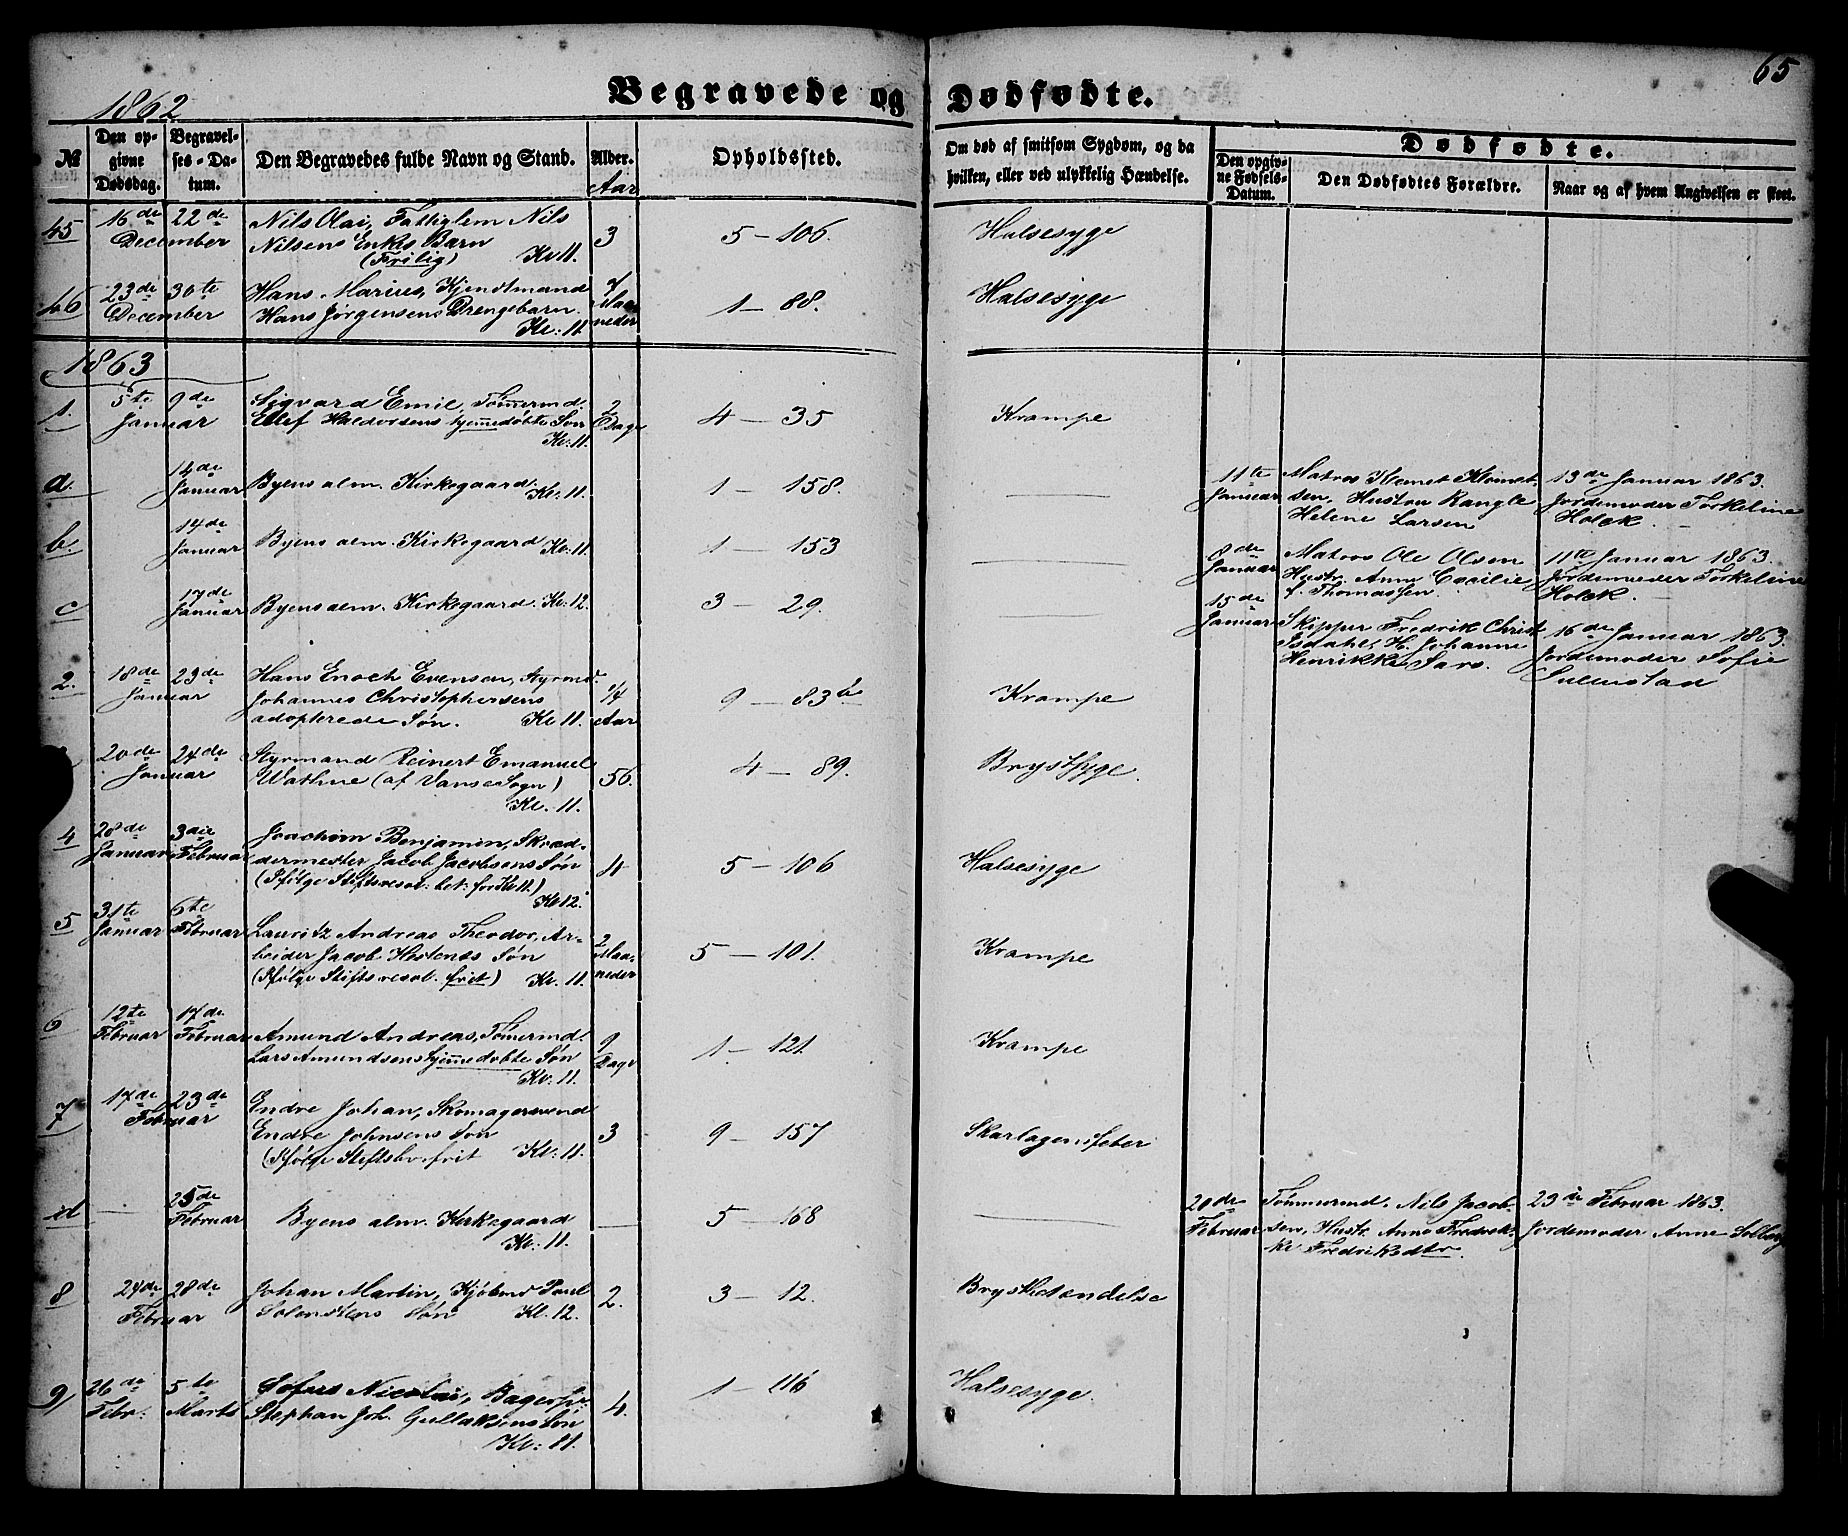 65
1862
Begravede og Dødfødte.
№
Den op-
givne
Dødsdag.
Begravel-
ses-Da-
tum.
Den Begravedes fulde Navn og Stand.
Alder.
Aar
Opholdssted.
Om død af smitsom Sygdom, og da
hvilken, eller ved ulykkelig Hændelse.
Dødfødte.
Den opgiv-
ne Fødsels-
Datum.
Den Dødfødtes Forældre.
Naar og af hvem Angivelsen er skeet.
45 16de 22de Nils Olai, Fattiglem Nils
December Nilsens Enkes Barn 3 5 – 106. Halsesyge
(Frilig) Kl 11.
46 23de 30te Hans Marius, Kjendtmand 7
December Hans Jørgensens Drengebarn. Maa- 1 – 88. Halsesyge
Kl: 11. neder
1863
1. 5te 9de Sigvard Emil, Tømermd. 2
Januar Ellef Haldorsens hjemmedøbte Søn Dage 4 – 35 Krampe
Kl: 11.
a. 14de Januar Byens alm. Kirkegaard. Kl. 11. 1 – 158.
11te Januar Matros Klemet Klemet-
sen, Hustru Rangle
Helene Larsen
13de Januar 1863.
Jordemoder Torkeline
Holck.
b. 14de Januar Byens alm. Kirkegaard Kl. 11. 1 – 153
8de Januar Matros Ole Olsen
Hustr. Anne Cæcilie
f. Thomassen.
11te Januar 1863.
Jordemoder Torkeline
Holck.
c 17de Januar Byens alm. Kirkegaard. Kl. 12. 3 – 29.
15de Januar Skipper Fredrik Christ.
Isdahl, H. Johanne
Henrikke Sars.
16de Januar 1863.
Jordemoder Sofie
2. 18de 23de Hans Enoch Evensen, Styrmd.
Januar Johannes Christophersens 1/4 9 – 83b Krampe
adopterede Søn. Kl 11. Aar
20de 24de Styrmand Reinert Emanuel
Januar Wathne (af Vanse Sogn) 56. 4 – 89. Brystsyge
Kl. 11.
4 28de 3die Joachim Benjamin, Skræd-
Januar Februar dermester Jacob Jacobsens Søn 4 5 – 106 Halsesyge
(Ifølge Stiftsresol: bet: for Kl 11.)
Kl 12.
5 31te 6te
Januar Februar Lauritz Andreas Theodor, Ar- 2
beider Jacob Hestenes Søn Maa- 5 – 101. Krampe
(Ifølge Stiftsresol. frit) Kl. 11. neder
6 12te 17de
Februar Februar Amund Andreas, Tømermd. 9
Lars Amundsens hjemmedøbte Søn Dage 1 – 121. Krampe
Kl: 11.
7 17de 23de Endre Johan, Skomagersvend
Februar Endre Johnsens Søn 3 9 – 157 Skarlagensfeber
(Ifølge frit Kl: 11.
d 25de
Februar Byens alm. Kirkegaard 5 – 168
Kl. 11.
20de Februar Tømmermd. Nils Jacob-
sen, Hustr. Anne Fredrik-
ke Fredriksdtr.
23de Februar 1863.
Jordemoder Anne Solberg
8 24de 28de Johan Martin, Kjøbmd Poul
Februar Søn Kl. 12. 2. 3 – 12. Brystbetændelse
9 26de 5te Sofus Nicolai,
Febr. Marts Stephan Joh. Gullaksens Søn 4. 1 – 116 Halsesyge.
Kl: 11.